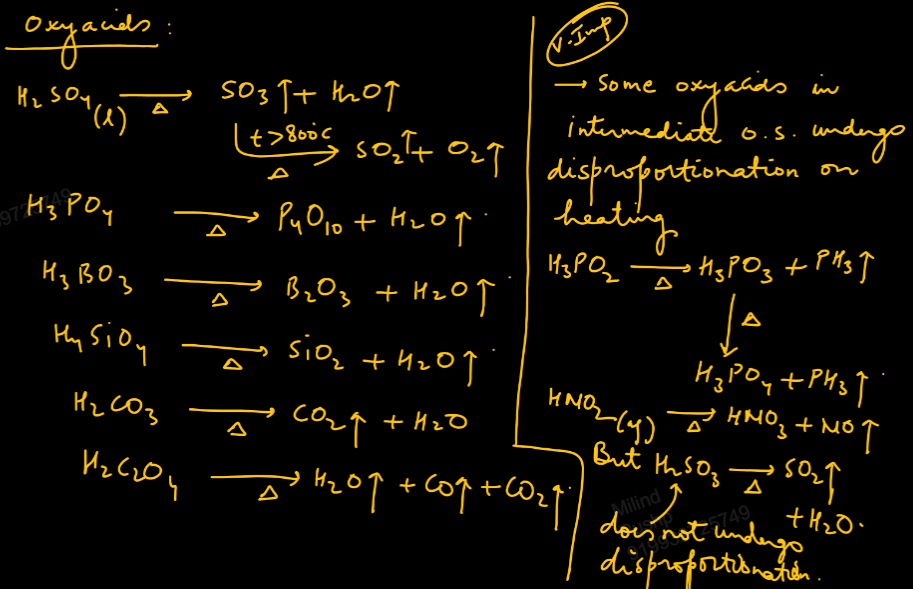 Oxyacids :
H₂SO₄(l) —Δ→ SO₃↑ + H₂O↑
t>800°C
Δ→ SO₂↑ + O₂↑
H₃PO₄ —Δ→ P₄O₁₀ + H₂O↑.
H₃BO₃ —Δ→ B₂O₃ + H₂O↑.
H₄SiO₄ —Δ→ SiO₂ + H₂O↑.
H₂CO₃ —Δ→ CO₂↑ + H₂O
H₂C₂O₄ —Δ→ H₂O↑ + CO↑ + CO₂↑.
V. Imp
→ Some oxyacids in
intermediate o.s. undergo
disproportionation on
heating
H₃PO₂ —Δ→ H₃PO₃ + PH₃↑
↓Δ
H₃PO₄ + PH₃↑.
HNO₂ —Δ→ HNO₃ + NO↑
But H₂SO₃ —Δ→ SO₂↑
+ H₂O.
does not undergo
disproportionation.
Milind